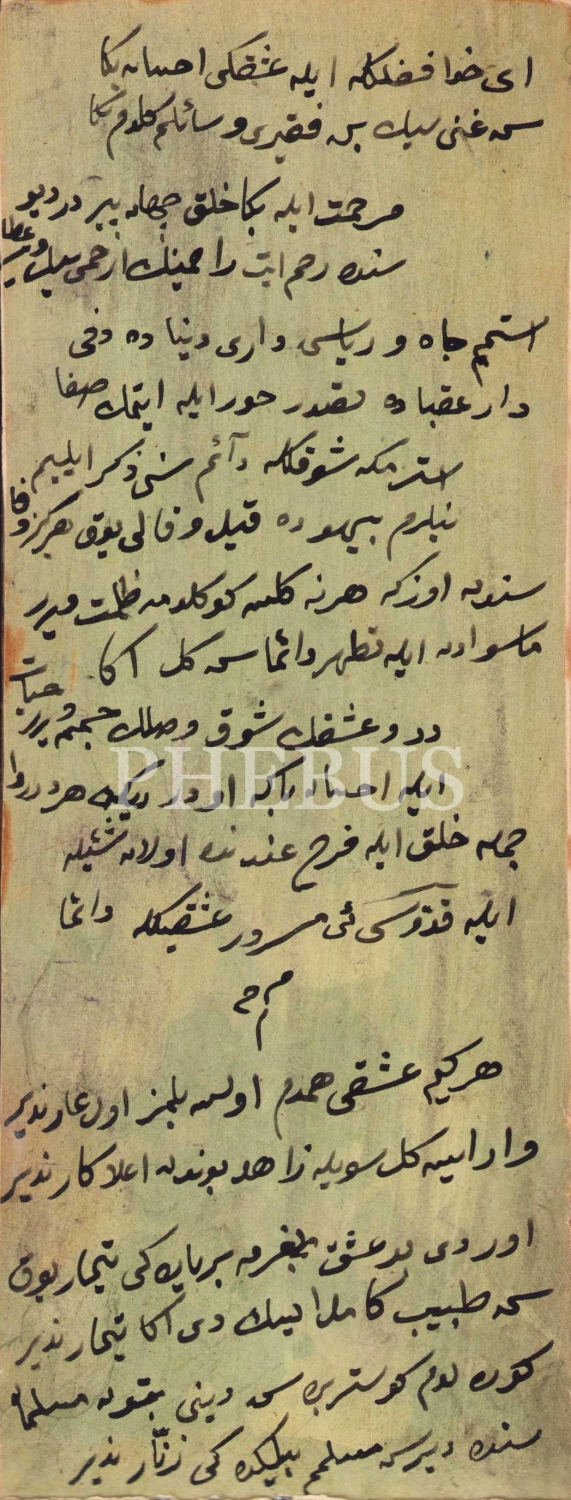 ای خدا فضلکله ایله عشقکی احسان بکا
سن غنی سیك بن فقیری و سائلم کلدم بکا
مرحمت ایله بکا خلق جهان پیر در دیو
سنده رحم ایت راحمینك ارحمی سیك وی عطا
استمم جاه و ریاسی داری دنیا ده دخی
دار عقباده حور ایله ایتمك صفا
استرمکه شوقکله دآئم سنی ذکر ایلییم
نیلرم بیهوده قیل و قالی یوق هرکز وفا
سندن اوزکه هر نه کلسه کوکلومه ظلمت ویرر
ماسوادن ایله تطهر دائما سن کل اکا
درد عشقك شوق وصلك جسممه ویرر حیات
ایله احسان باکه اودر هر درده روا
جمله خلق ایله فرح عندنده اولان شیئله
ایله قدوسی ئی مسرور عشقیکله دائما
م م م
هر کیم عشقی همدم اولسه بلمز اول عار ندیر
وار ایسه کل سویله زاهد بوندن اعلا کار ندیر
اوردی عشق بغرمه بر یاره کی تیمار یوق
سن طبیب کامل ایسك دی اکا تیمار ندیر
کوره لوم کوستر سن دینی بتون مسلمان
سنده دیرسن مسلمم بیلیکده کی زنّار ندیر
PHEBUS